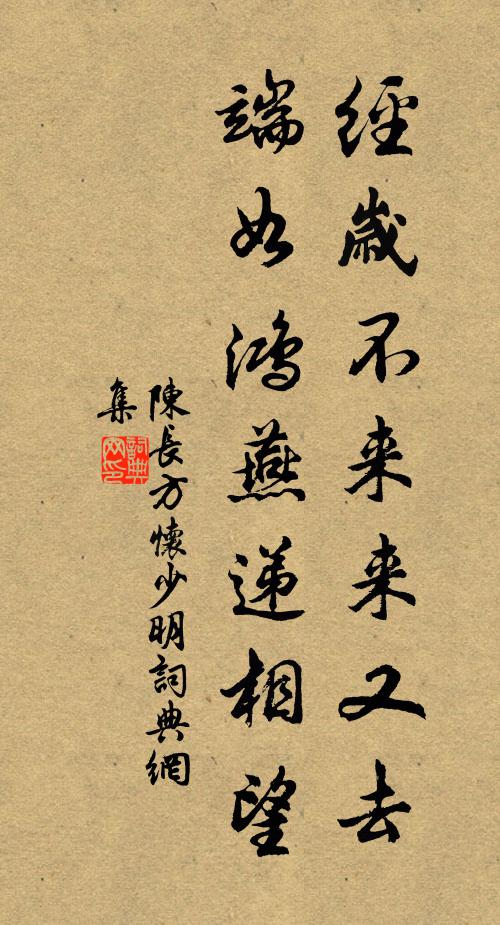 經歲不来来又去
端如鴻燕递相望
陳長方懷少明詞典網
集
詞典网印